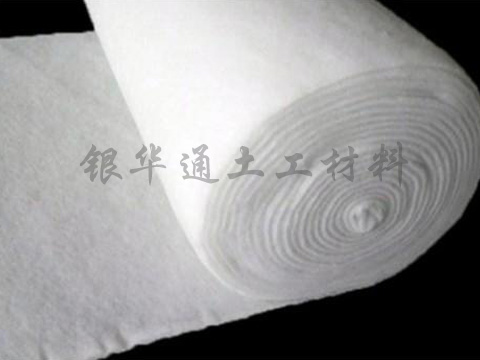 银华通土工材料